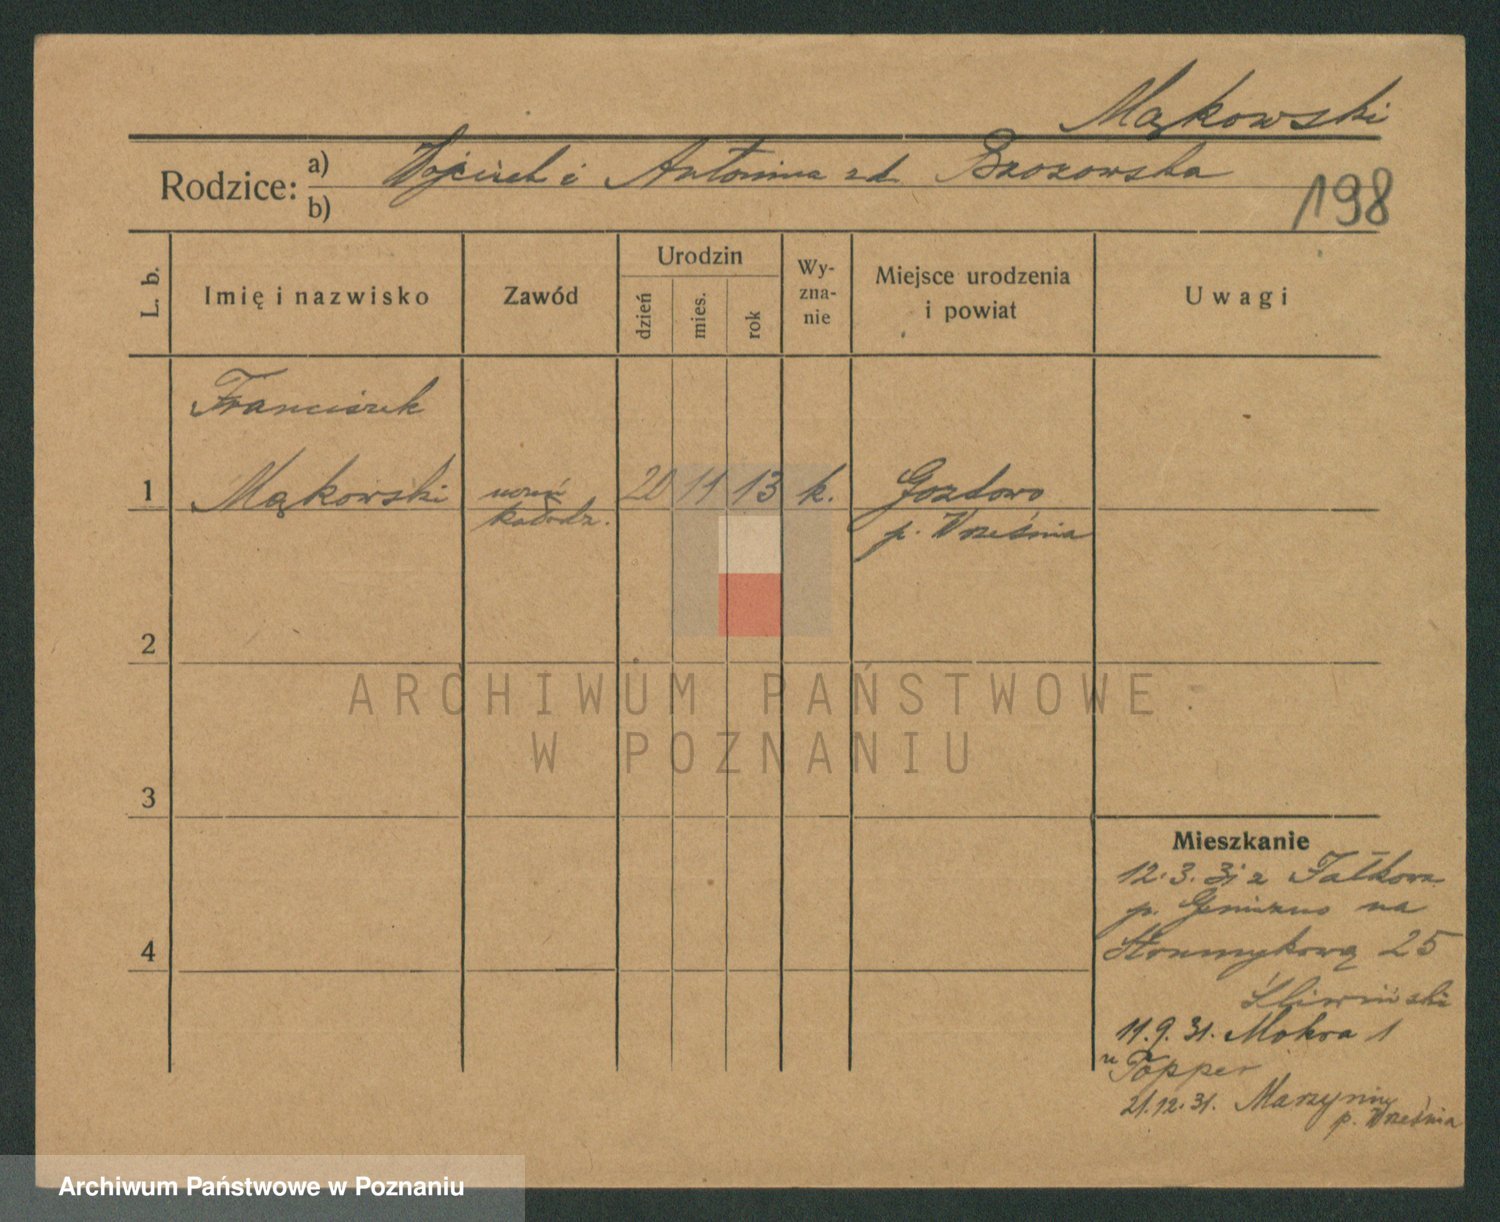 Mąkowski
Rodzice: a) Wojciech i Antonina zd. Brzozowska
b)
198
L. b. Imię i nazwisko Zawód Urodzin dzień mies. rok Wy-zna-nie Miejsce urodzenia i powiat Uwagi
Franciszek
1 Mąkowski uczeń 20 11 13 k. Gozdowo
kołodz. p. Września
2
3
4
ARCHIWUM PAŃSTWOWE
W POZNANIU
Mieszkanie
12.3.31 z Fałkowa
p. Gniezno na
Strumykową 25
Śliwiński
11.9.31. Mokra 1
u Popper
21.12.31. Marzyniny
p. Września
Archiwum Państwowe w Poznaniu